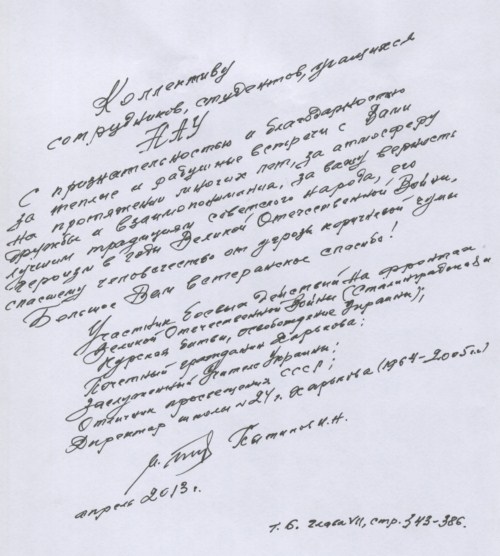 Коллективу
сотрудников, студентов, учащихся
НАУ
С признательностью и благодарностью
за теплые и радушные встречи с Вами
на протяжении многих лет, за атмосферу
дружбы и взаимопонимания, за вашу верность
лучшим традициям советского народа, его
героизм в годы Великой Отечественной Войны,
спасшему человечество от угрозы коричневой чумы
Большое Вам ветеранское спасибо!
Участник боевых действий на фронтах
Великой Отечественной Войны (Сталинградской и
Курской битвы, освобождение Украины);
Почетный гражданин Харькова;
Заслуженный Учитель Украины;
Отличник просвещения СССР;
Директор школы №24 г. Харькова (1964-2005гг.)
И.Н.
апрель 2013г.
Т. 6. глава VII, стр. 343-386.